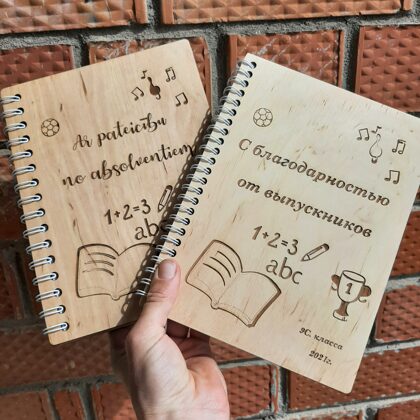 Ar pateicību
no absolventiem
1+2=3
ab
С благодарностью
от выпускников
1+2=3
abc
1
9С. класса
2021г.